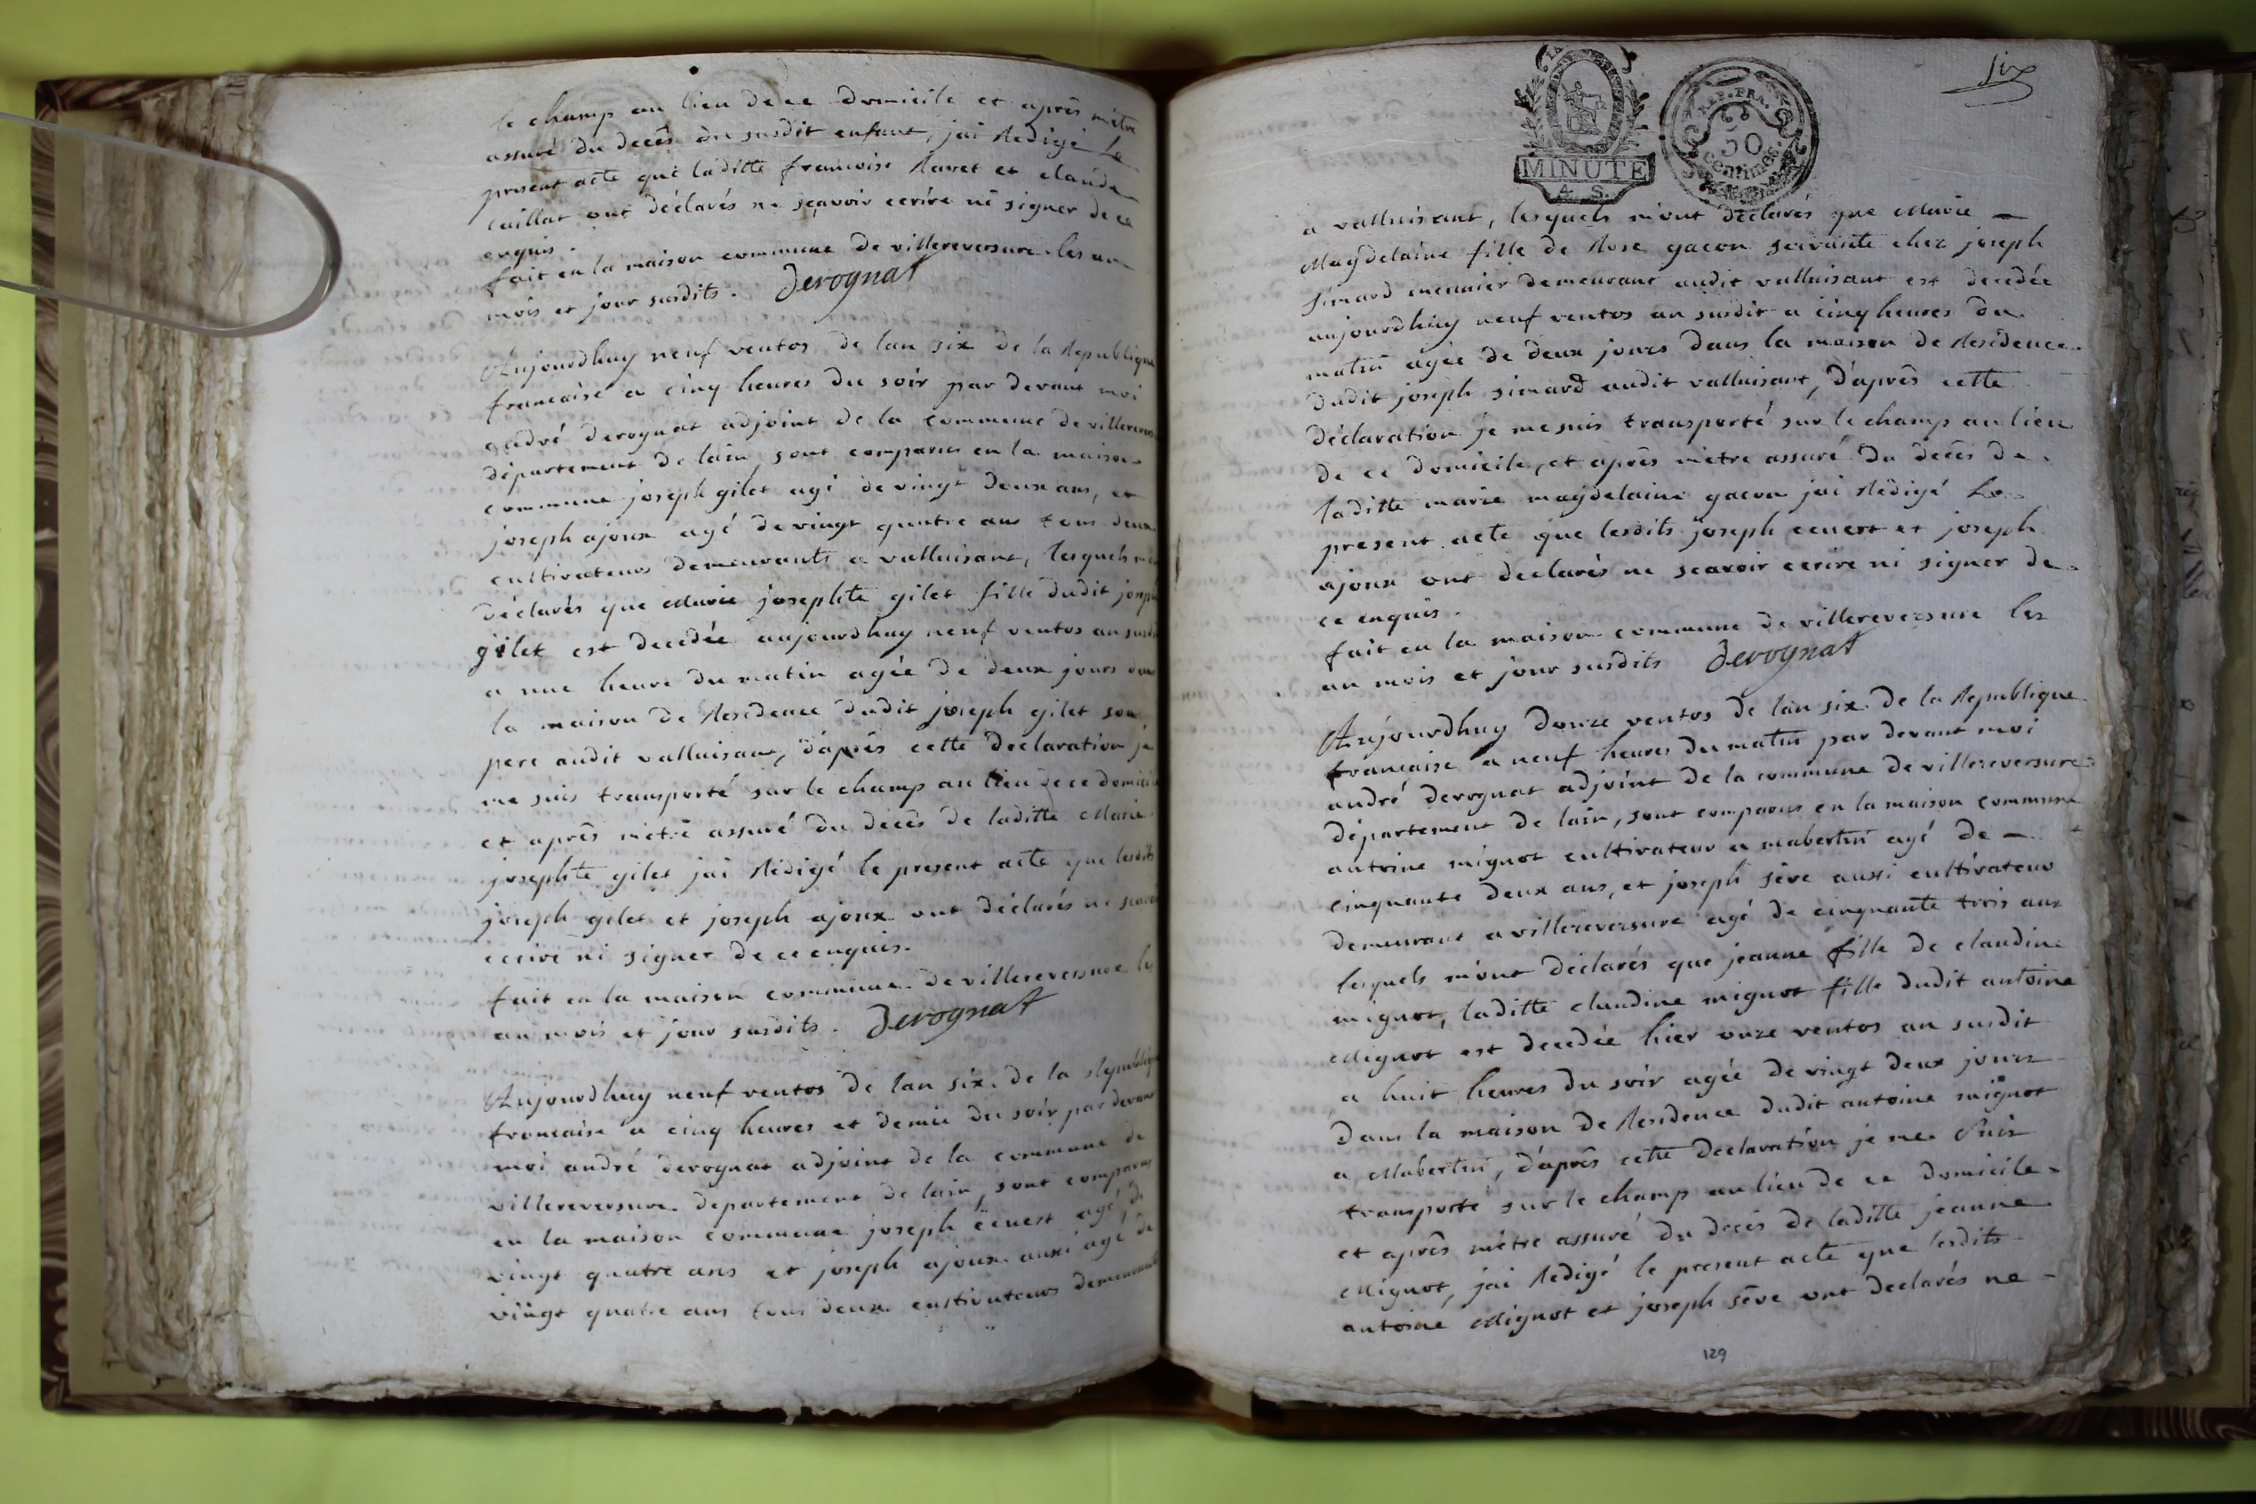 le champ au lieu de ce domicile et après mètre
assuré du decès du susdit enfant, jai Redigé le
present acte que laditte francoise Ravet et claude
caillat ont déclarés ne sçavoir ecrire ni signer de ce
enquis.
fait en la maison commune de villereversure les an
mois et jour susdits. Derognat
Aujourdhuy neuf ventos de lan six de la Republique
francaise a cinq heures du soir par devant moi
andré derognat adjoint de la commune de villerevers
département de lain, sont comparus en la maison
commune joseph gilet agé de vingt deux ans, et
joseph ajoux agé de vingt quatre ans tous deux
cultivateurs demeurants a valluisant, lesquels
déclarés que Marie josephte gilet fille dudit joseph
gilet est decedée aujourdhuy neuf ventos an susdit
a une heure du matin agée de deux jours
la maison de Residence dudit joseph gilet son
pere audit valluisant, d'après cette declaration je
me suis transporté sur le champ au lieu de ce domicile
et après mètre assuré du decès de laditte Marie
josephte gilet jai Rédigé le present acte que lesdits
joseph gilet et joseph ajoux ont déclarés ne scavoir
ecrire ni signer de ce enquis.
fait en la maison commune de villereversure les
an mois et jour susdits. Derognat
Aujourdhuy neuf ventos de lan six de la Republiq
francaise a cinq heures et demie du soir par devant
moi andré derognat adjoint de la commune de
villereversure departement de lain, sont comparus
en la maison commune joseph ecuert agé de
vingt quatre ans et joseph ajoux aussi agé de
vingt quatre ans tous deux cultivateurs demeurants
six
MINUTE
A. S.
REP. FRA.
50
centimes.
a valluisant, lesquels m'ont déclarés que Marie –
Magdelaine fille de Rose gacon servante chez joseph
simard meunier demeurant audit valluisant est decedée
aujourdhuy neuf ventos an susdit a cinq heures du
matin agée de deux jours dans la maison de Residence
dudit joseph simard audit valluisant, d'après cette
déclaration je me suis transporté sur le champ au lieu
de ce domicile, et après mètre assuré du decès de
laditte marie magdelaine gacon jai Rédigé le
present acte que lesdits joseph ecuert et joseph
ajoux ont declarés ne scavoir ecrire ni signer de
ce enquis.
fait en la maison commune de villereversure les
an mois et jour susdits Derognat
Aujourdhuy douze ventos de lan six de la Republique
francaise a neuf heures du matin par devant moi
andré derognat adjoint de la commune de villereversure
département de lain, sont comparus en la maison commune
antoine mignot cultivateur a mabertin agé de –
cinquante deux ans, et joseph sève aussi cultivateur
demeurant a villereversure agé de cinquante trois ans
lesquels m'ont déclarés que jeanne fille de claudine
mignot, laditte claudine mignot fille dudit antoine
Mignot est decedée hier onze ventos an susdit
a huit heures du soir agée de vingt deux jours
dans la maison de Residence dudit antoine mignot
a Mabertin, d'après cette declaration je me suis
transporté sur le champ au lieu de ce domicile
et après mètre assuré du decès de laditte jeanne
Mignot, jai Redigé le present acte que lesdits
antoine Mignot et joseph sève ont declarés ne –
129